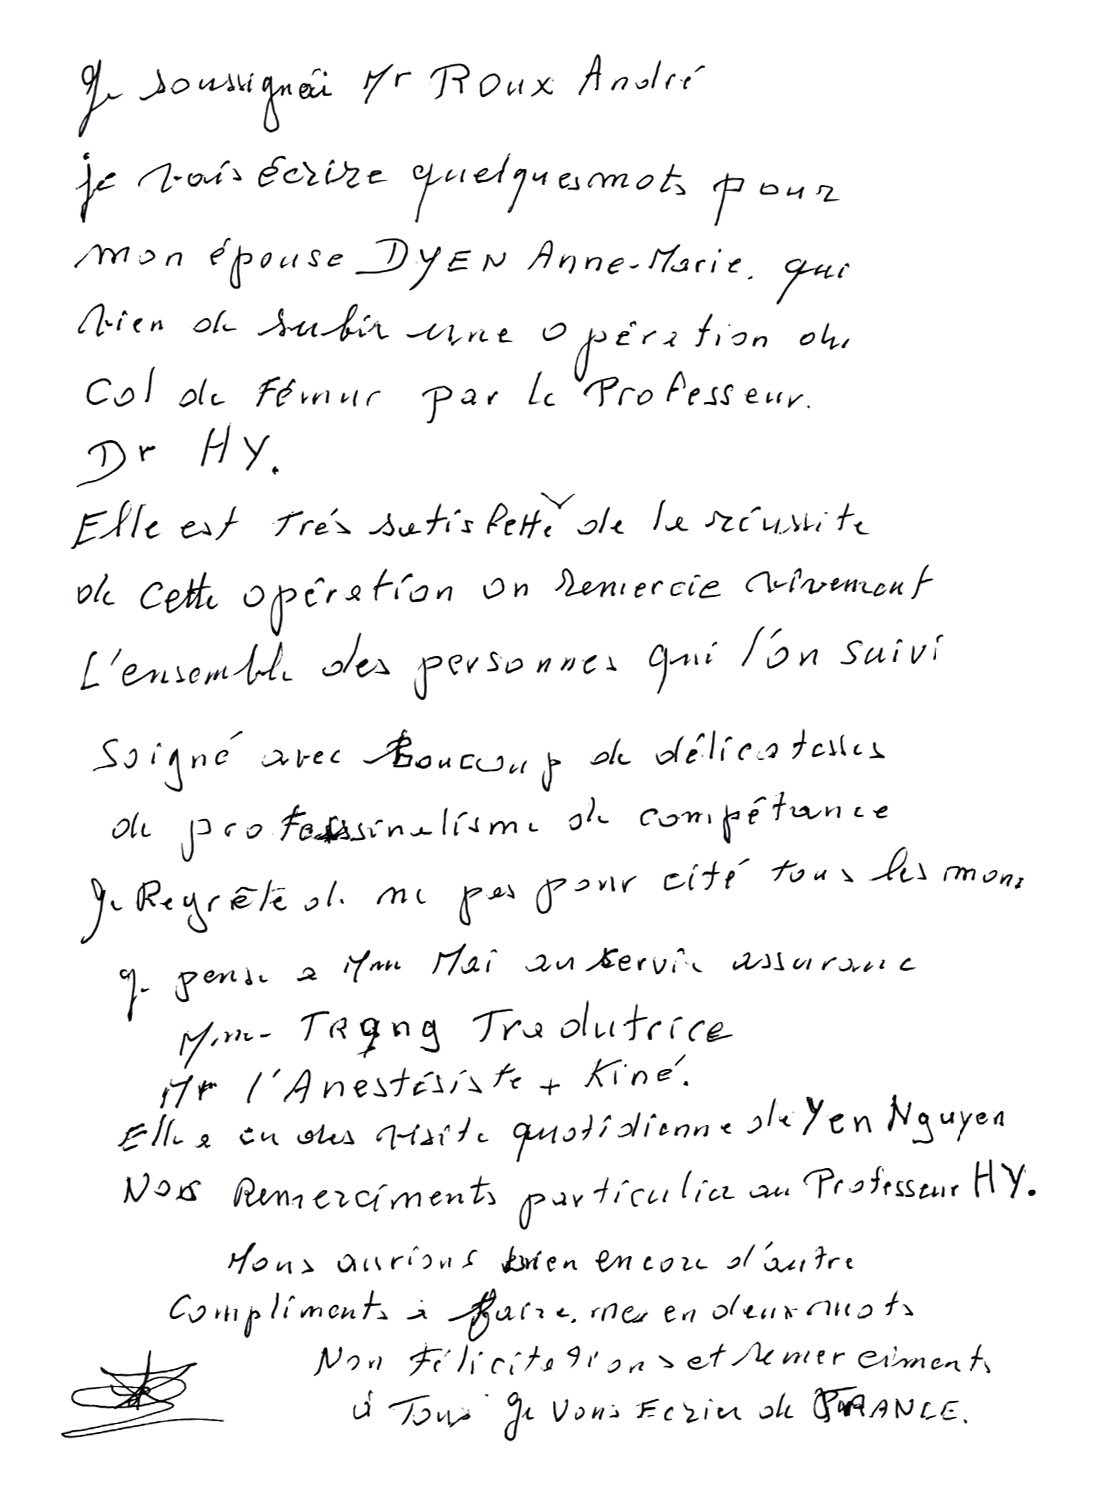 Je soussignéi Mr Roux André
je vais écrire quelques mots pour
mon épouse DYEN Anne-Marie. qui
vien de subir une opération du
Col de Fémur par le Professeur.
Dr HY.
Elle est Trés satisfette de la réussite
de cette opération on remercie vivement
L'ensemble des personnes qui l'on suivi
Soigné avec boucoup de délicatesses
de professinalisme de compétance
Je Regrête de ne pas pour cité tous les mons
je pense a Mme Mai au servic assuranc
Mme Trang Tradutrice
Mr l'Anestésiste + Kiné.
Elle a eu des visite quotidienne de Yen Nguyen
Nos Remerciments particulier au Professeur HY.
Nous aurions bien encore d'autre
Compliments à faire. mes en deux mots
Non Félicitations et remerciments
à Tous je vous Ecrier de FRANCE.